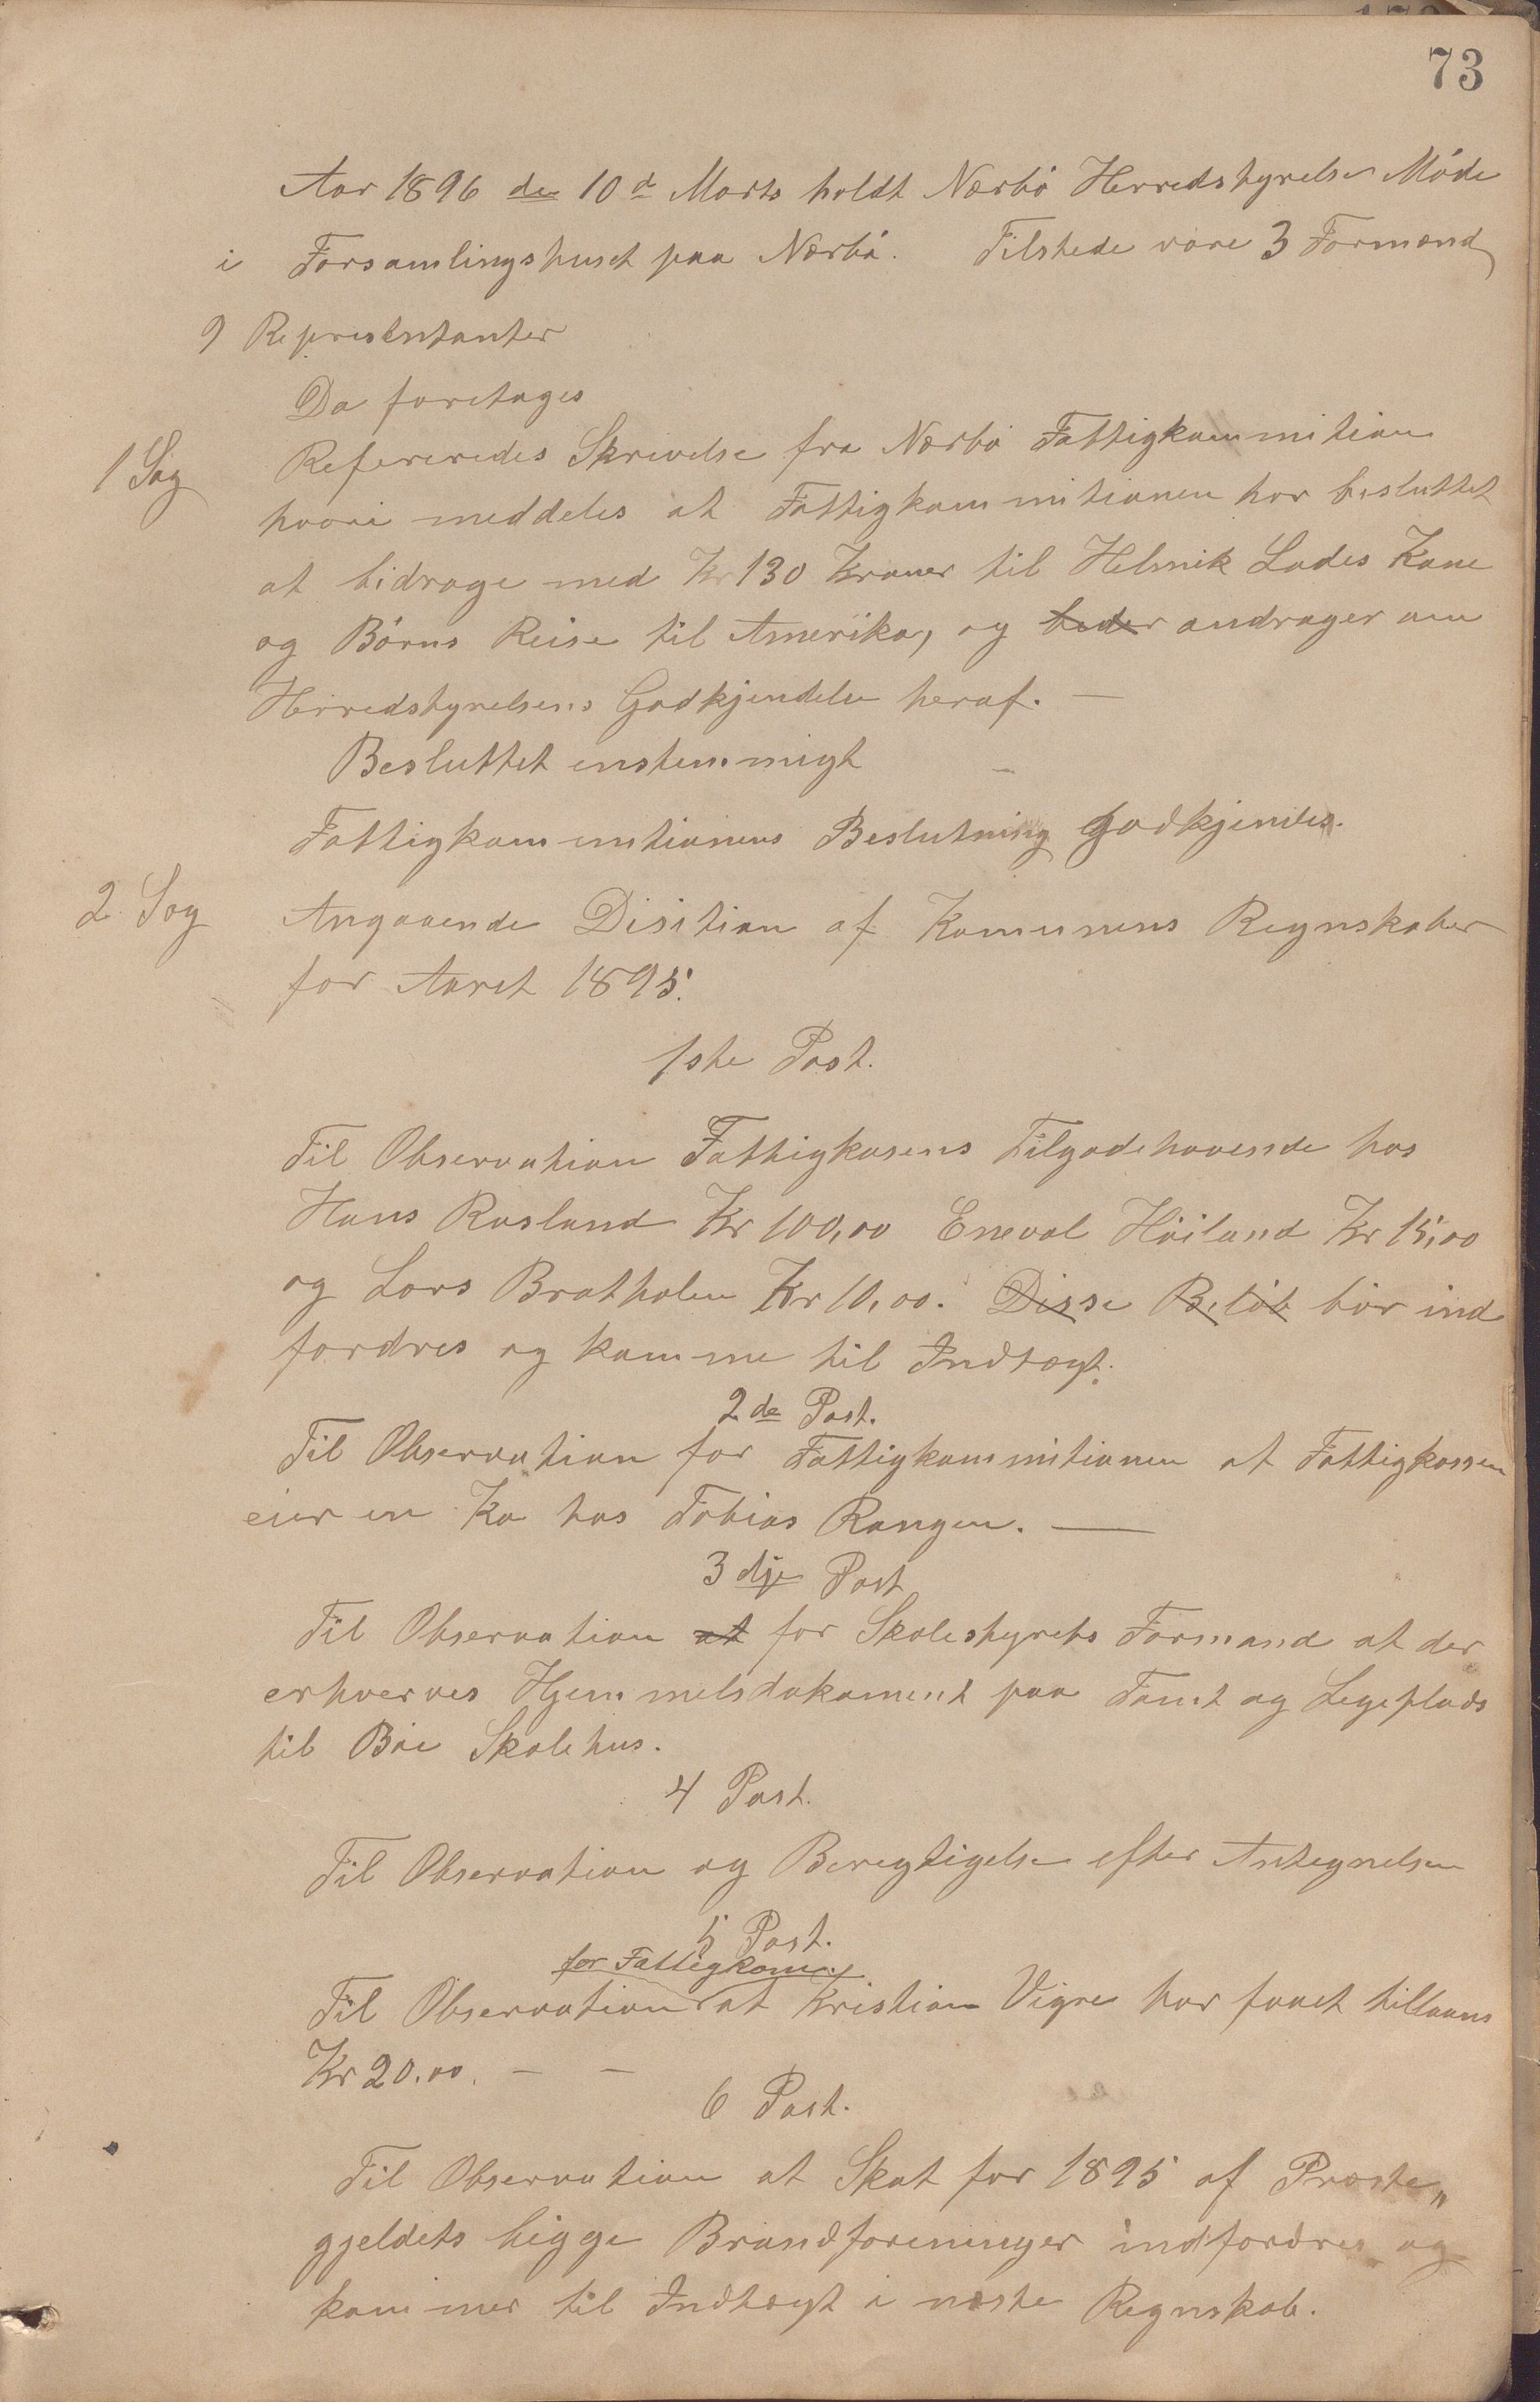 73
Aar 1896 den 10d Marts holdt Nærbø Herredstyrelse Møde
i Forsamlingshuset paa Nærbø. Tilstede vare 3 Formænd
9 Representanter
Da foretages
1 Sag Refereredes Skrivelse fra Nærbø Fattigkommition
hvori meddeles at Fattigkommitionen har besluttet
at bidrage med Kr 130 Kroner til Helmik Lodes Kone
og Børns Reise til Amerika, og beder andrager om
Herredstyrelsens Godkjendelse heraf. —
Besluttet enstemmigt —
Fattigkommitionens Beslutning Godkjendes.
2 Sag Angaaende Disition af Komunens Regnskaber
for Aaret 1895.
1ste Post.
Til Observation Fattigkasens Tilgodehavende hos
Hans Rasland Kr 100,00 Eneval Høiland Kr 15,00
og Lars Bratholen Kr 10,00. Disse Beløb bør ind
fordres og komme til Indtægt.
2de Post.
Til Observation for Fattigkommitionen at Fattigkassen
eier en Ko hos Tobias Rangen. —
3dje Post
Til Observation at for Skolestyrets Formand at der
erhverves Hjemmelsdokament paa Tomt og Legeplads
til Bøe Skolehus.
4 Post.
Til Observation og Beregtigelse efter Antegnelsen
5 Post.
for Fattigkomi.
Til Observation at Kristian Vigre har faaet tillaans
Kr 20.00. — —
6 Post.
Til Observation at Skat for 1895 af Præste„
gjeldets bigge Brandforeninger indfordres og
kommer til Indtægt i næste Regnskab.